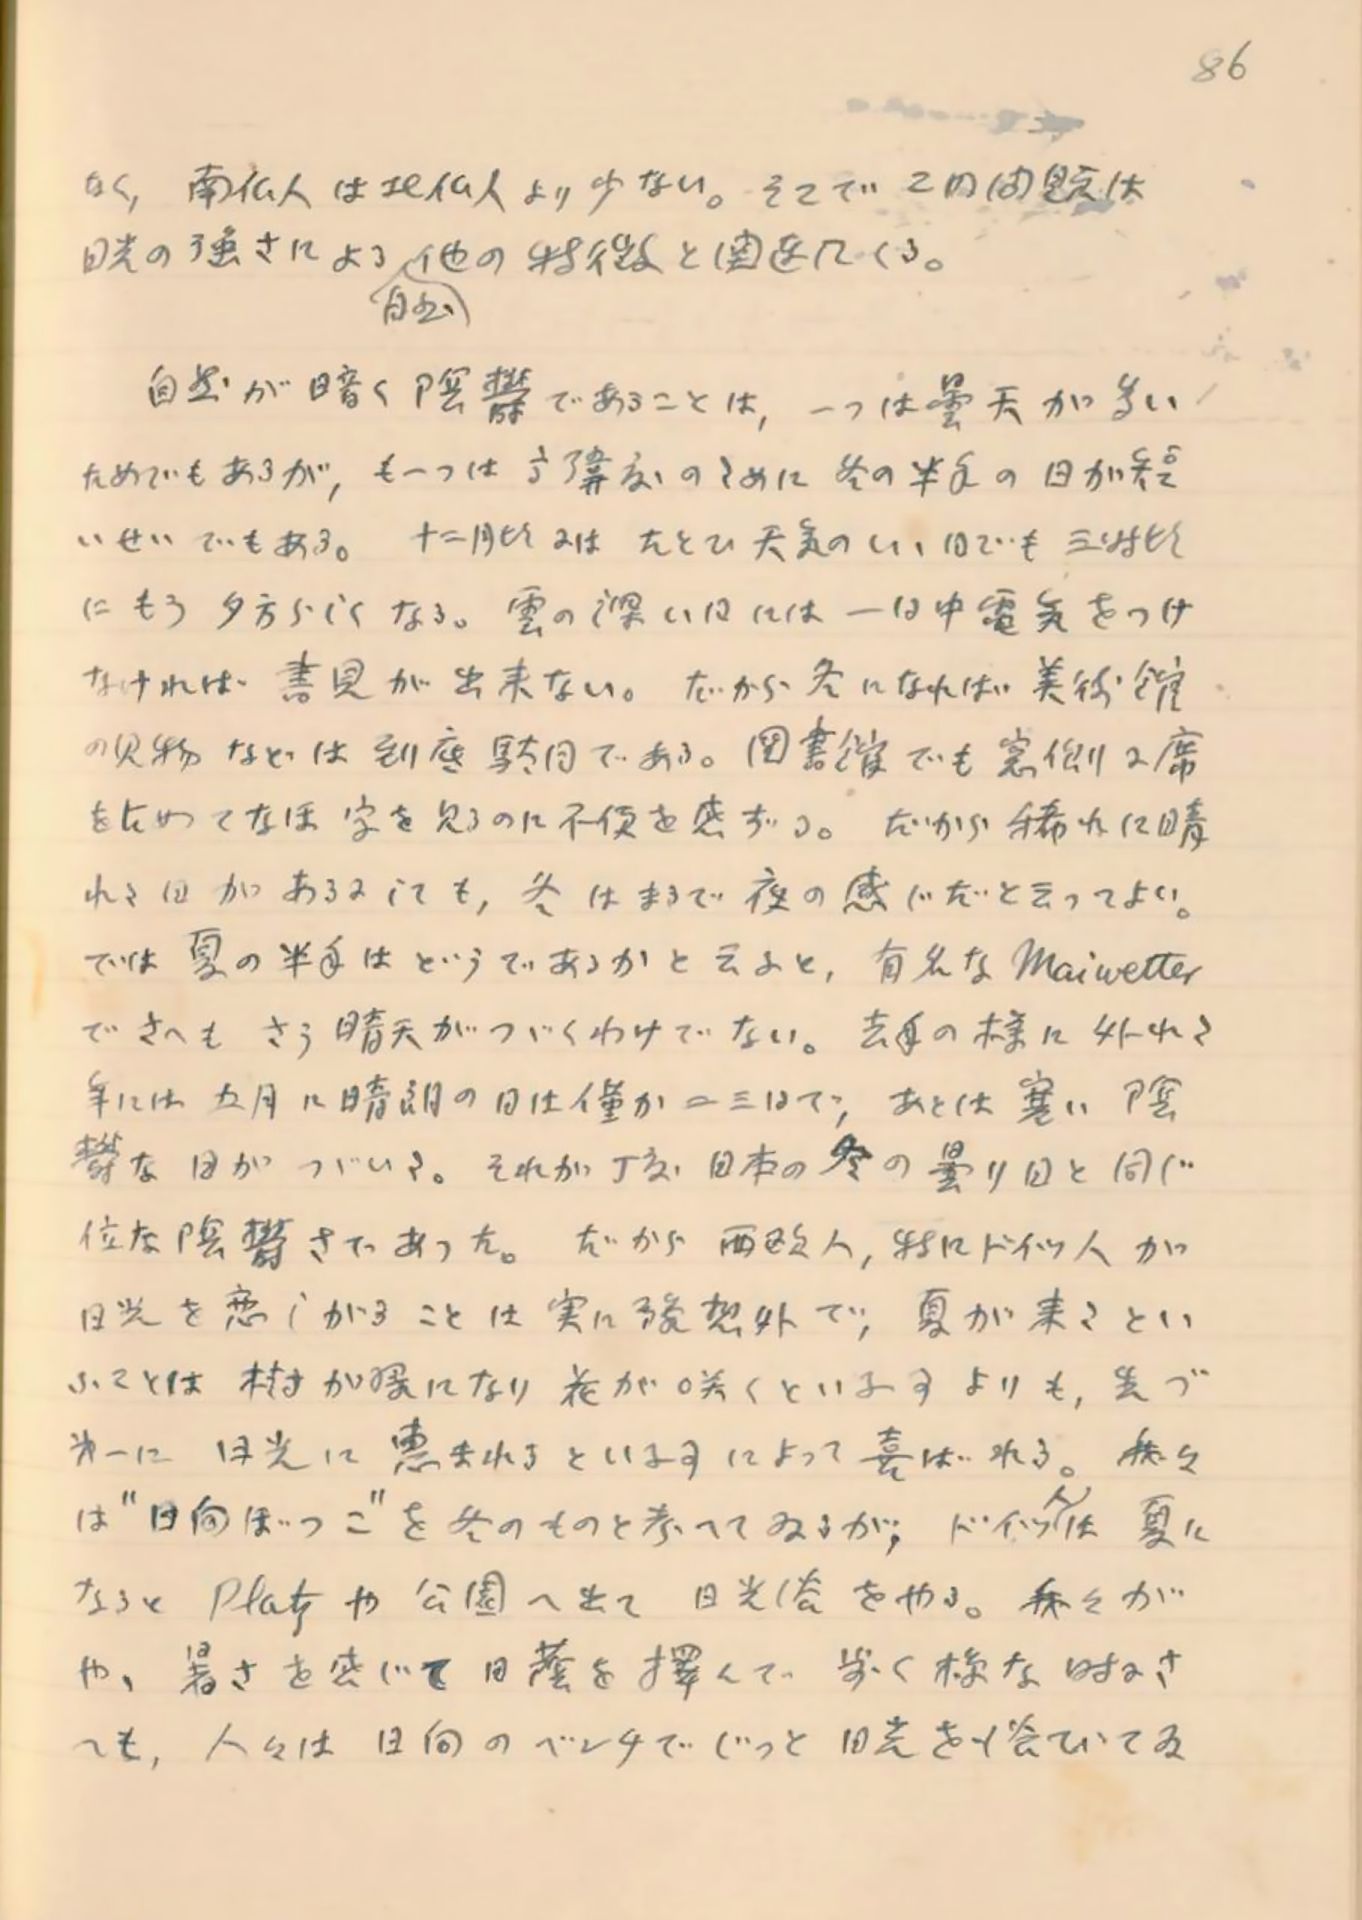 86
なく, 南仏人は北仏人より少ない。そこでこの問題は
日光の強さによる他の特徴と関連してくる。
自然
自然が暗く陰欝であることは, 一つは曇天が多い
ためでもあるが, も一つは高緯度のために冬の半年の日が短
いせいでもある。十二月頃にはたとひ天気のいゝ日でも三時頃
にもう夕方らしくなる。雲の深い日には一日中電気をつけ
なければ書見が出来ない。だから冬になれば美術館
の見物などは到底駄目である。図書館でも窓側に席
を占めてなほ字を見るのに不便を感ずる。だから稀れに晴
れた日があるにしても, 冬はまるで夜の感じだと云ってよい。
では夏の半年はどうであるかと云ふと, 有名な Maiwetter
でさへもさう晴天がつゞくわけでない。去年の様に外れた
年には五月に晴朗の日は僅か二三日で, あとは寒い陰
欝な日がつゞいた。それが丁度日本の冬の曇り日と同じ
位な陰欝さであった。だから西欧人, 特にドイツ人が
日光を恋しがることは実に予想外で, 夏が来たとい
ふことは樹が緑になり花が咲くといふ事よりも, 先づ
第一に日光に恵まれるといふ事によって喜ばれる。我々
は"日向ぼっこ"を冬のものと考へてゐるが, ドイツ人は夏に
なると Platz や公園へ出て日光浴をやる。我々が
やゝ暑さを感じて日蔭を擇んで歩く様な時にさ
へも, 人々は日向のベンチでじっと日光を浴びてゐ